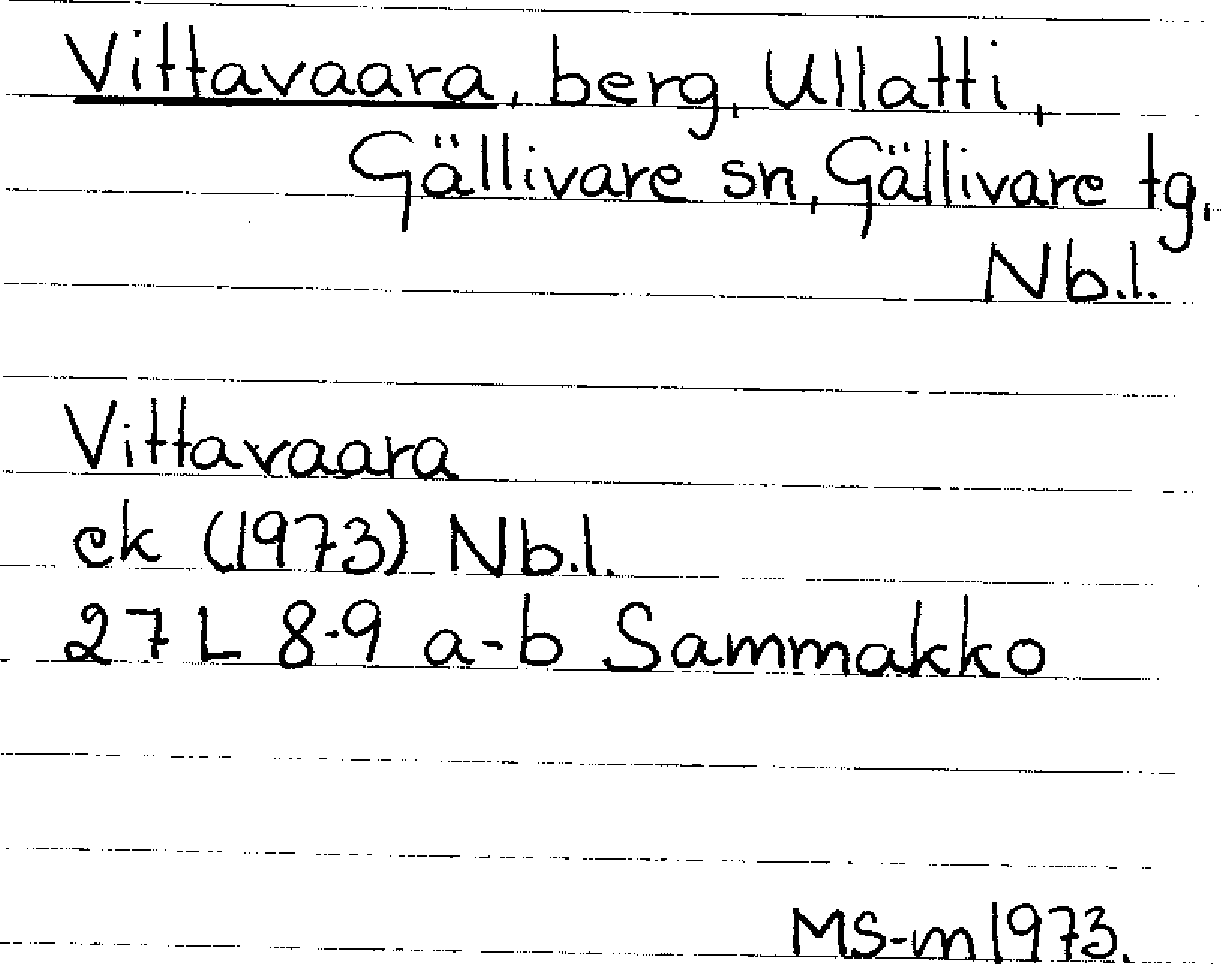 Vittavaara, berg, Ullatti,
Gällivare sn, Gällivare tg,
Nb.l.
Vittavaara
ek (1973) Nb.l.
27 L 8-9 a-b Sammakko
MS-m 1973.